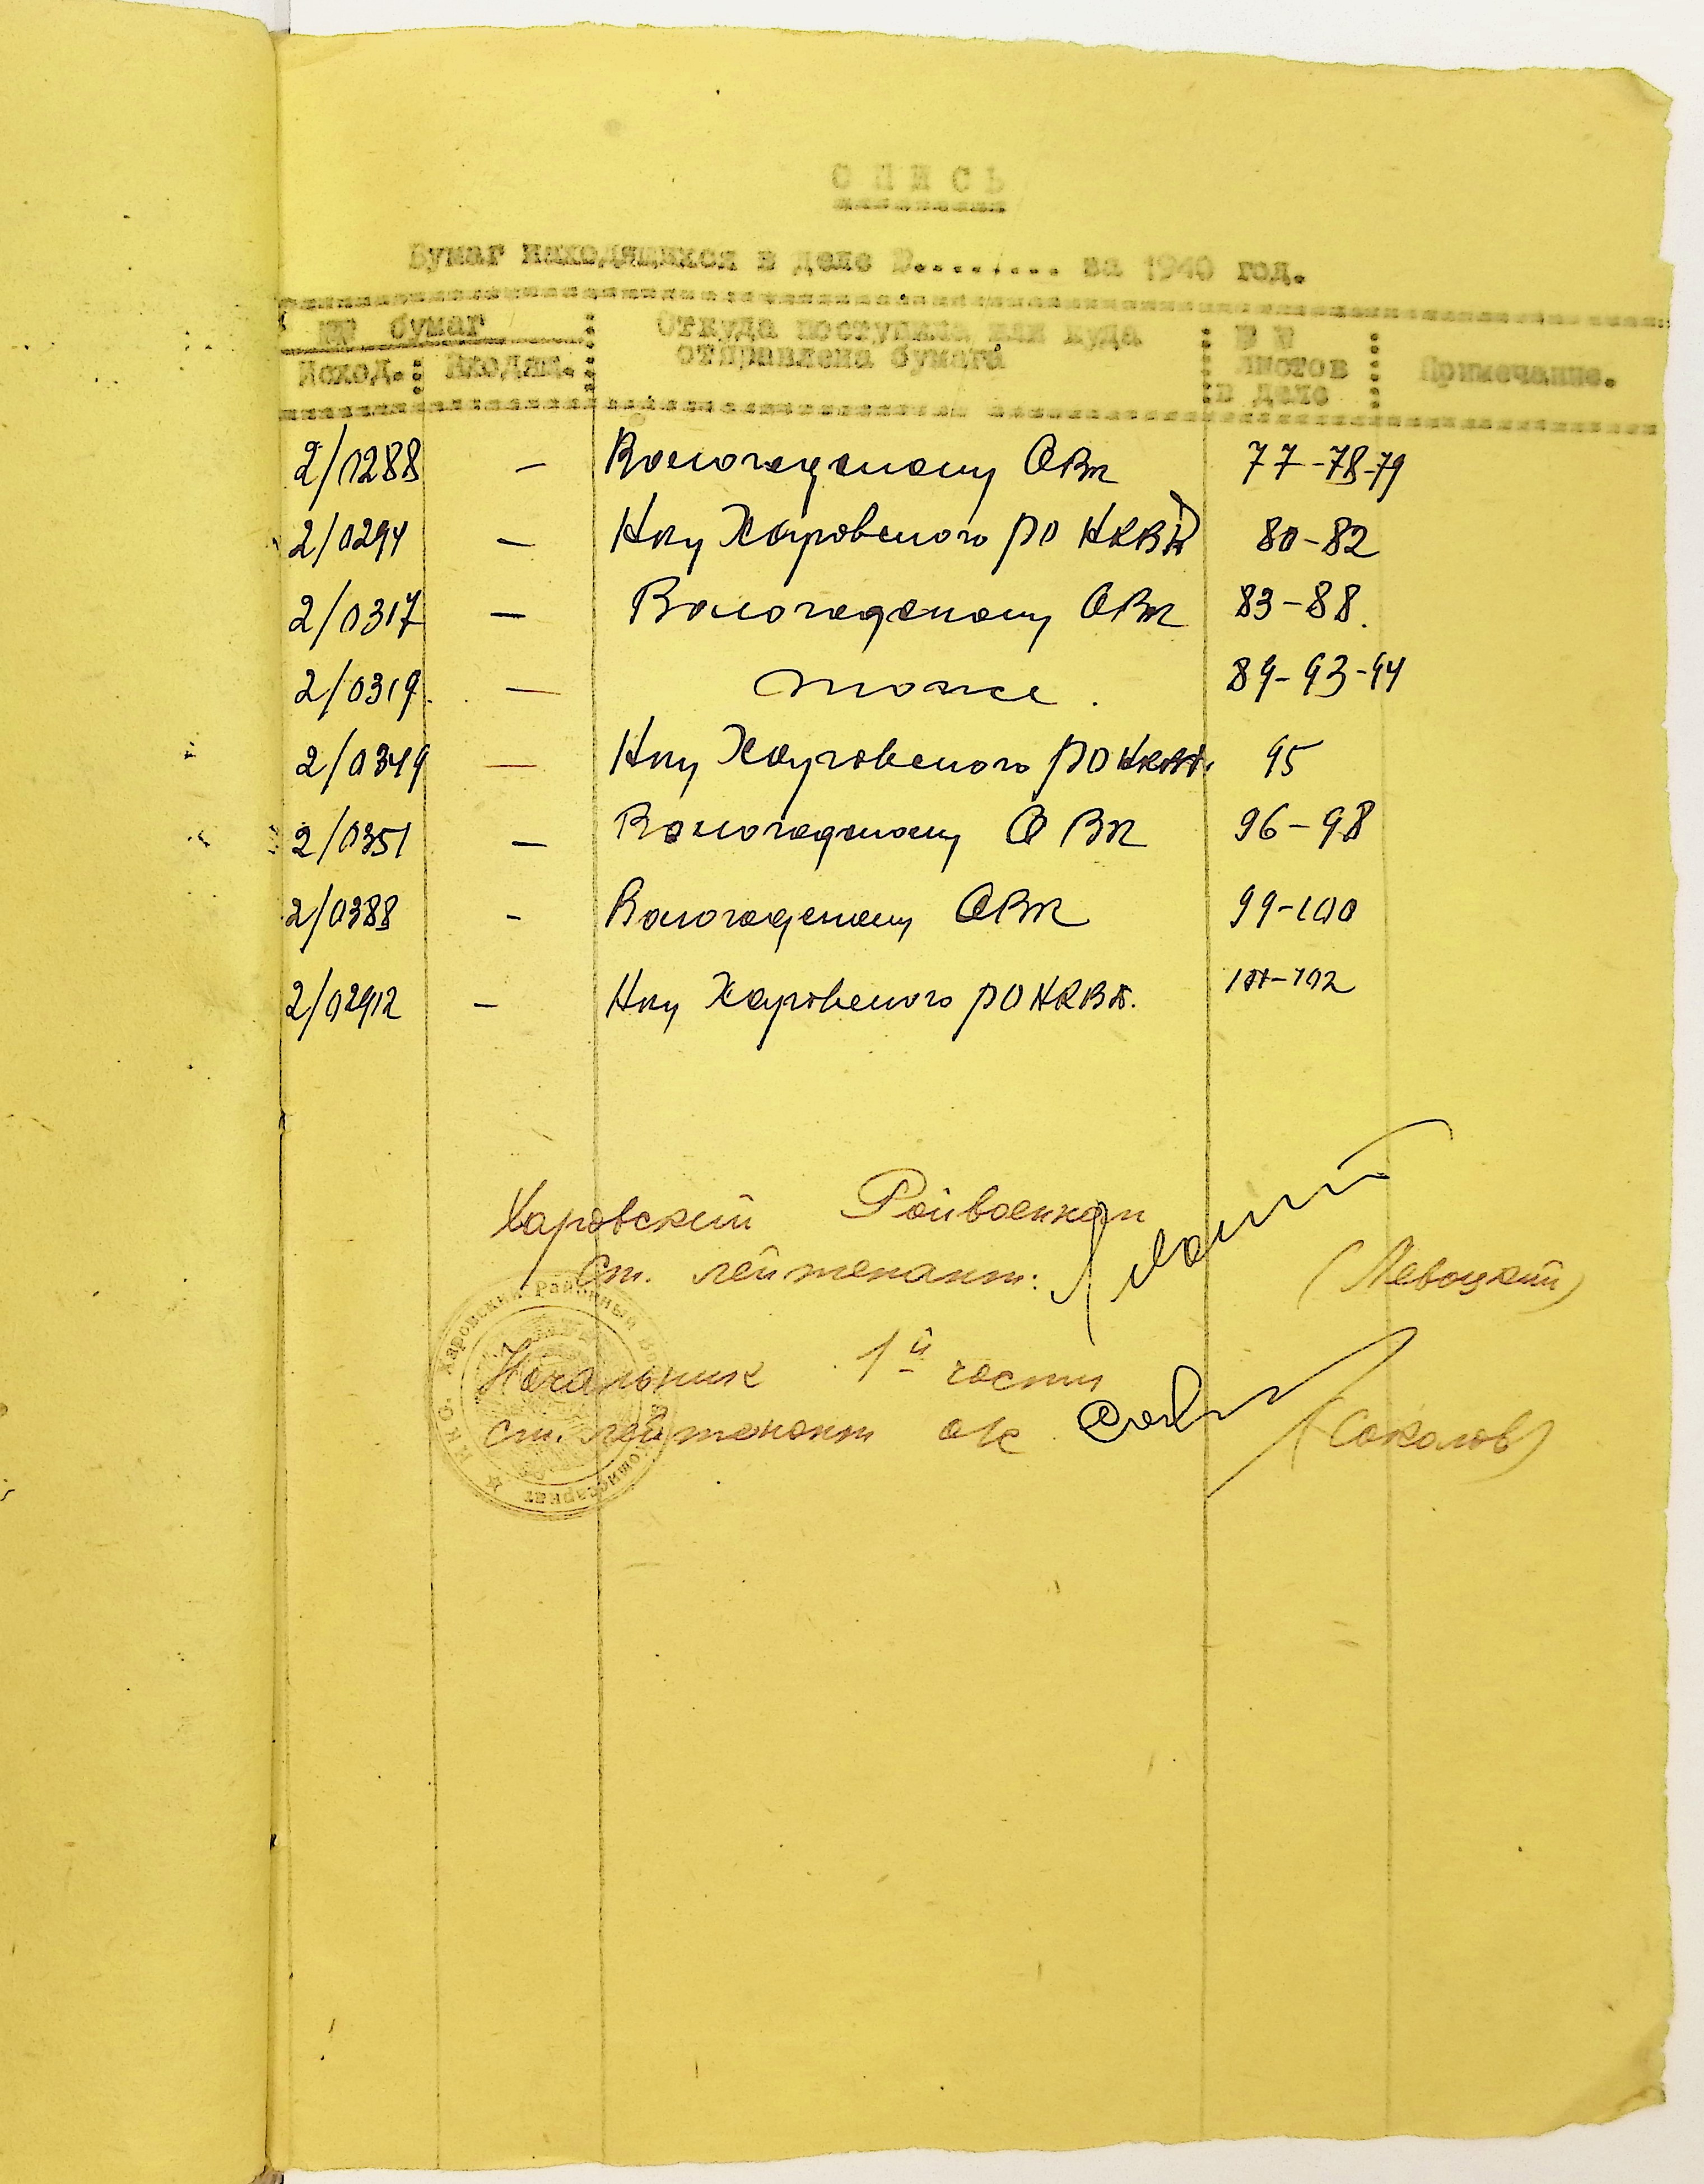 О П И С Ь
Бумаг находящихся в деле №......... за 1940 год.
№№ бумаг : Откуда поступила или куда : № №
Исход. : Входящ. : отправлена бумага : листов : Примечание.
: в деле :
2/0288 — Вологодскому ОВК 77-78-79
2/0294 — Нку Харовского РО НКВД 80-82
2/0317 — Вологодскому ОВК 83-88.
2/0319. — тоже. 89-93-94
2/0349 — Нку Харовского РО НКВД. 95
2/0351 — Вологодскому ОВК 96-98
2/0388 - Вологодскому ОВК 99-100
2/02912 - Нку Харовского РО НКВД. 101-102
Харовский Райвоенком
Ст. лейтенант: (Левоцкий)
Начальник 1й части
ст. лейтенант а/с (Соколов)
Н.К.О. Харовский Районный Военный Комиссариат